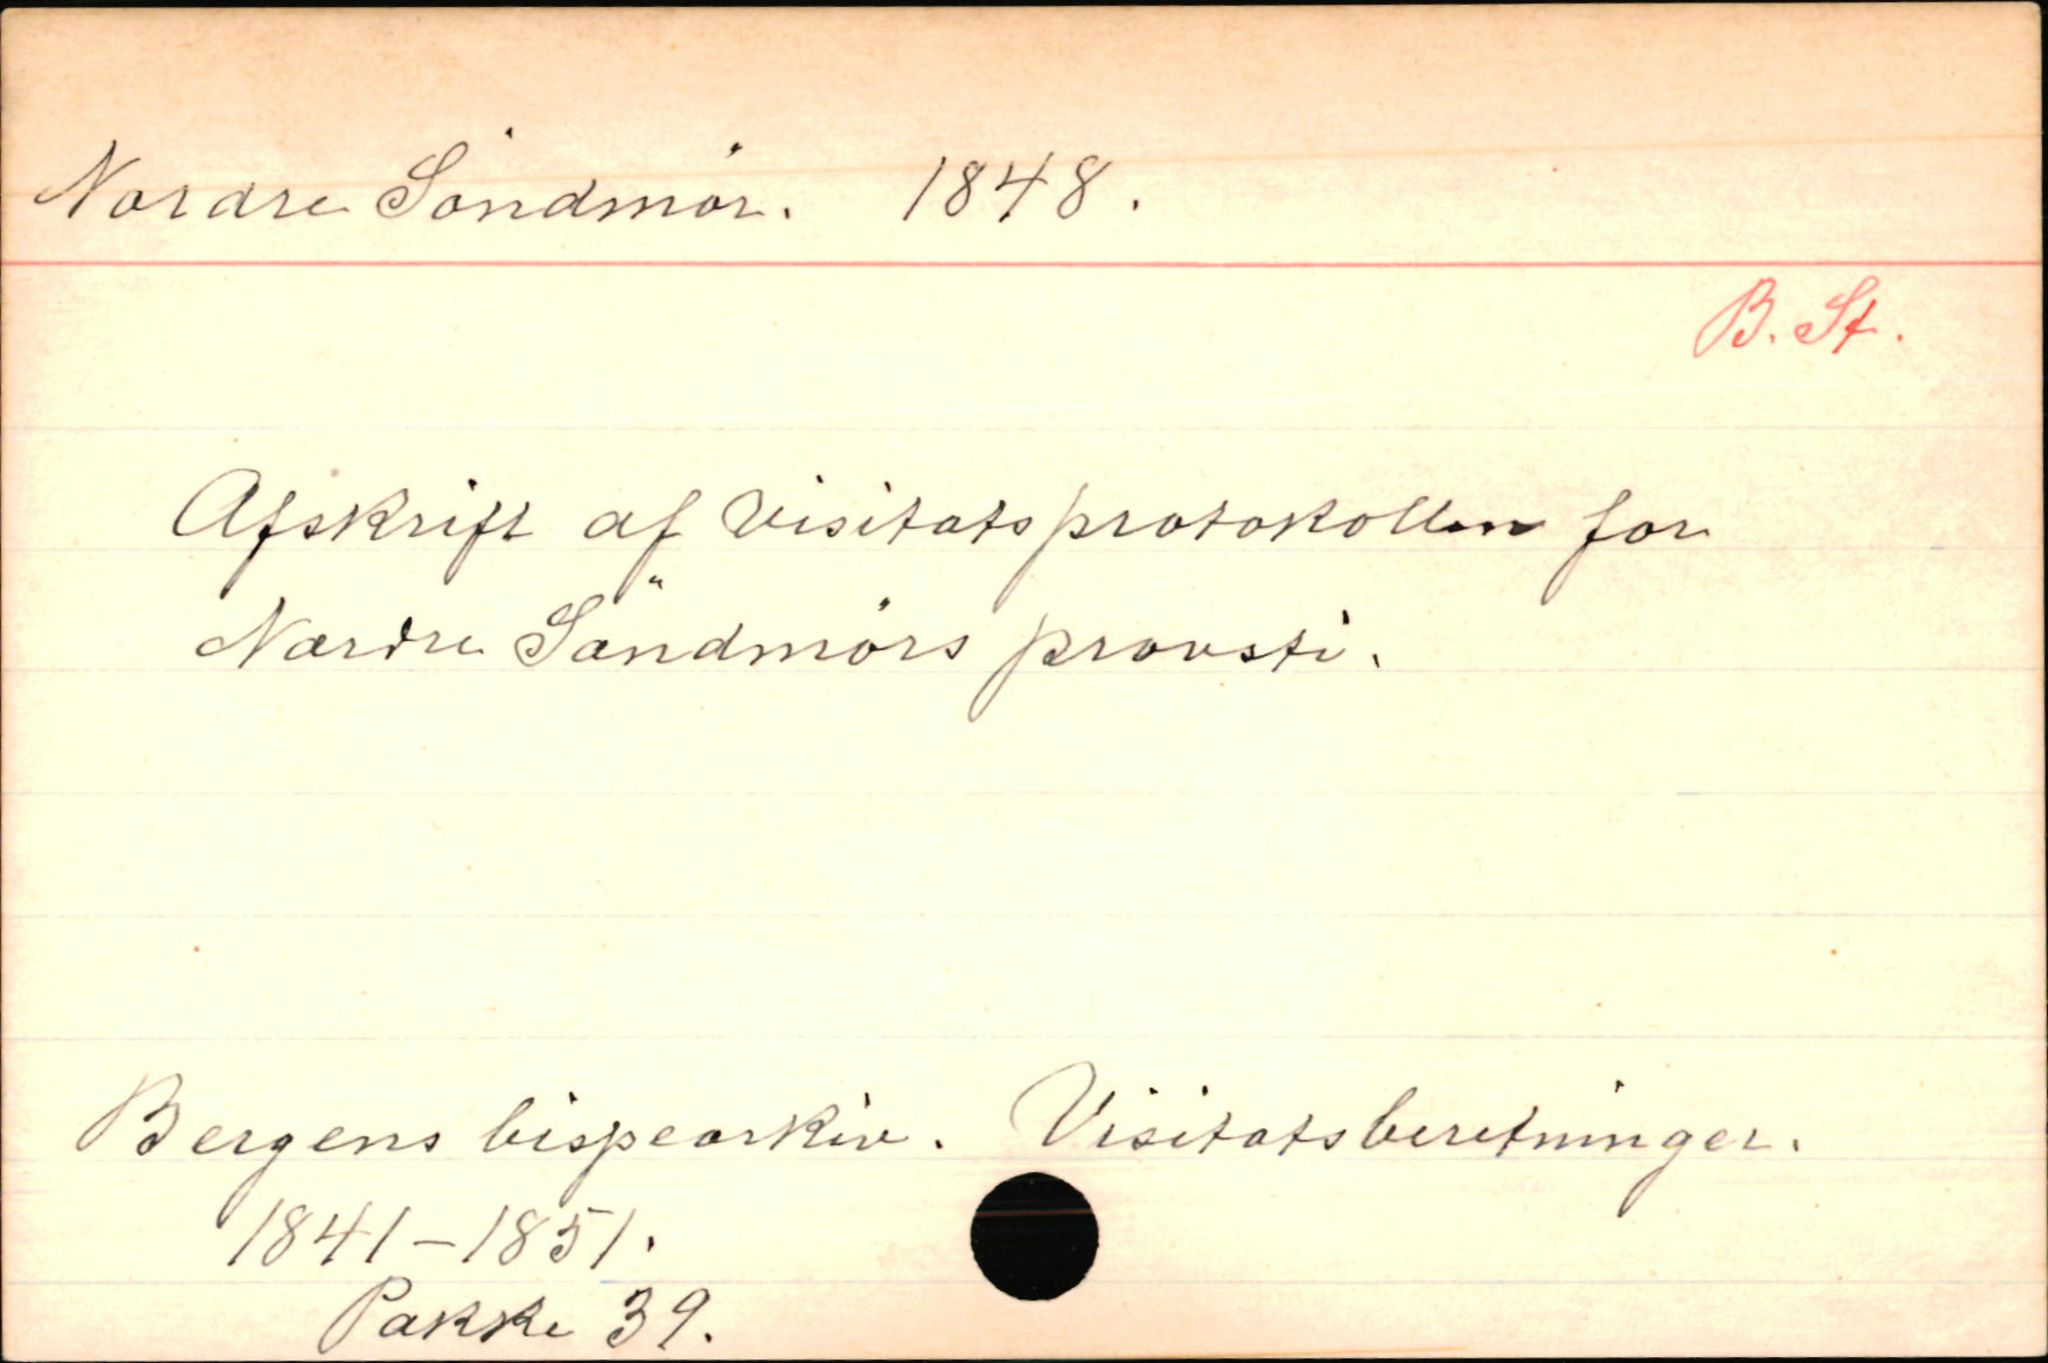 Nordre Söndmör. 1848.
B. St.
Afskrift af Visitatsprotokollen for
Nordre Söndmörs provsti.
Bergens bispearkiv. Visitatsberetninger.
1841-1851.
Pakke 39.